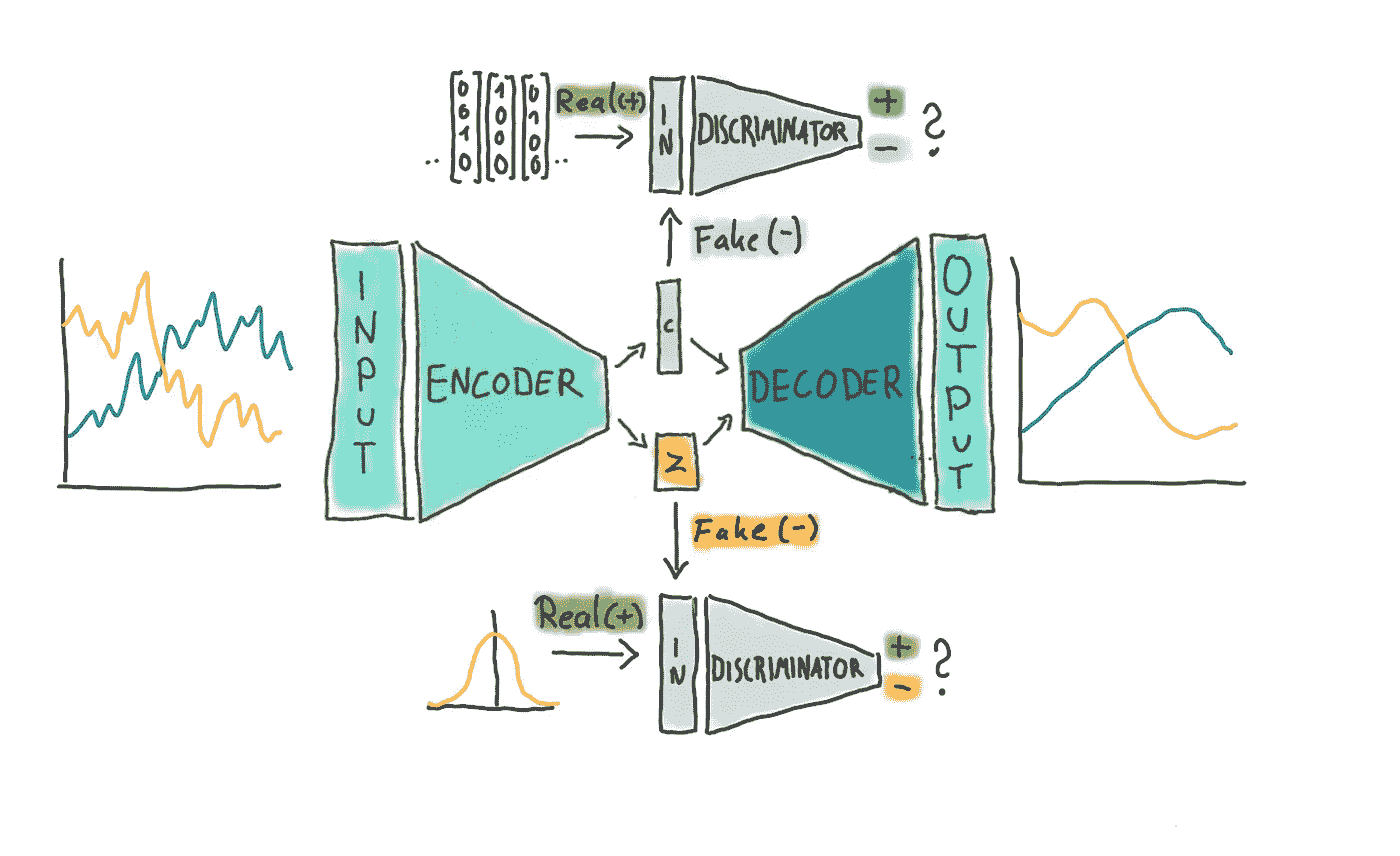 0 1 0
0 0 1
1 0 0
0 0 0
.. ..
Real(+)
IN
DISCRIMINATOR
+
-
?
Fake (-)
INPUT
ENCODER
c
z
DECODER
...
OUTPUT
Fake (-)
Real(+)
IN
DISCRIMINATOR
+
-
?